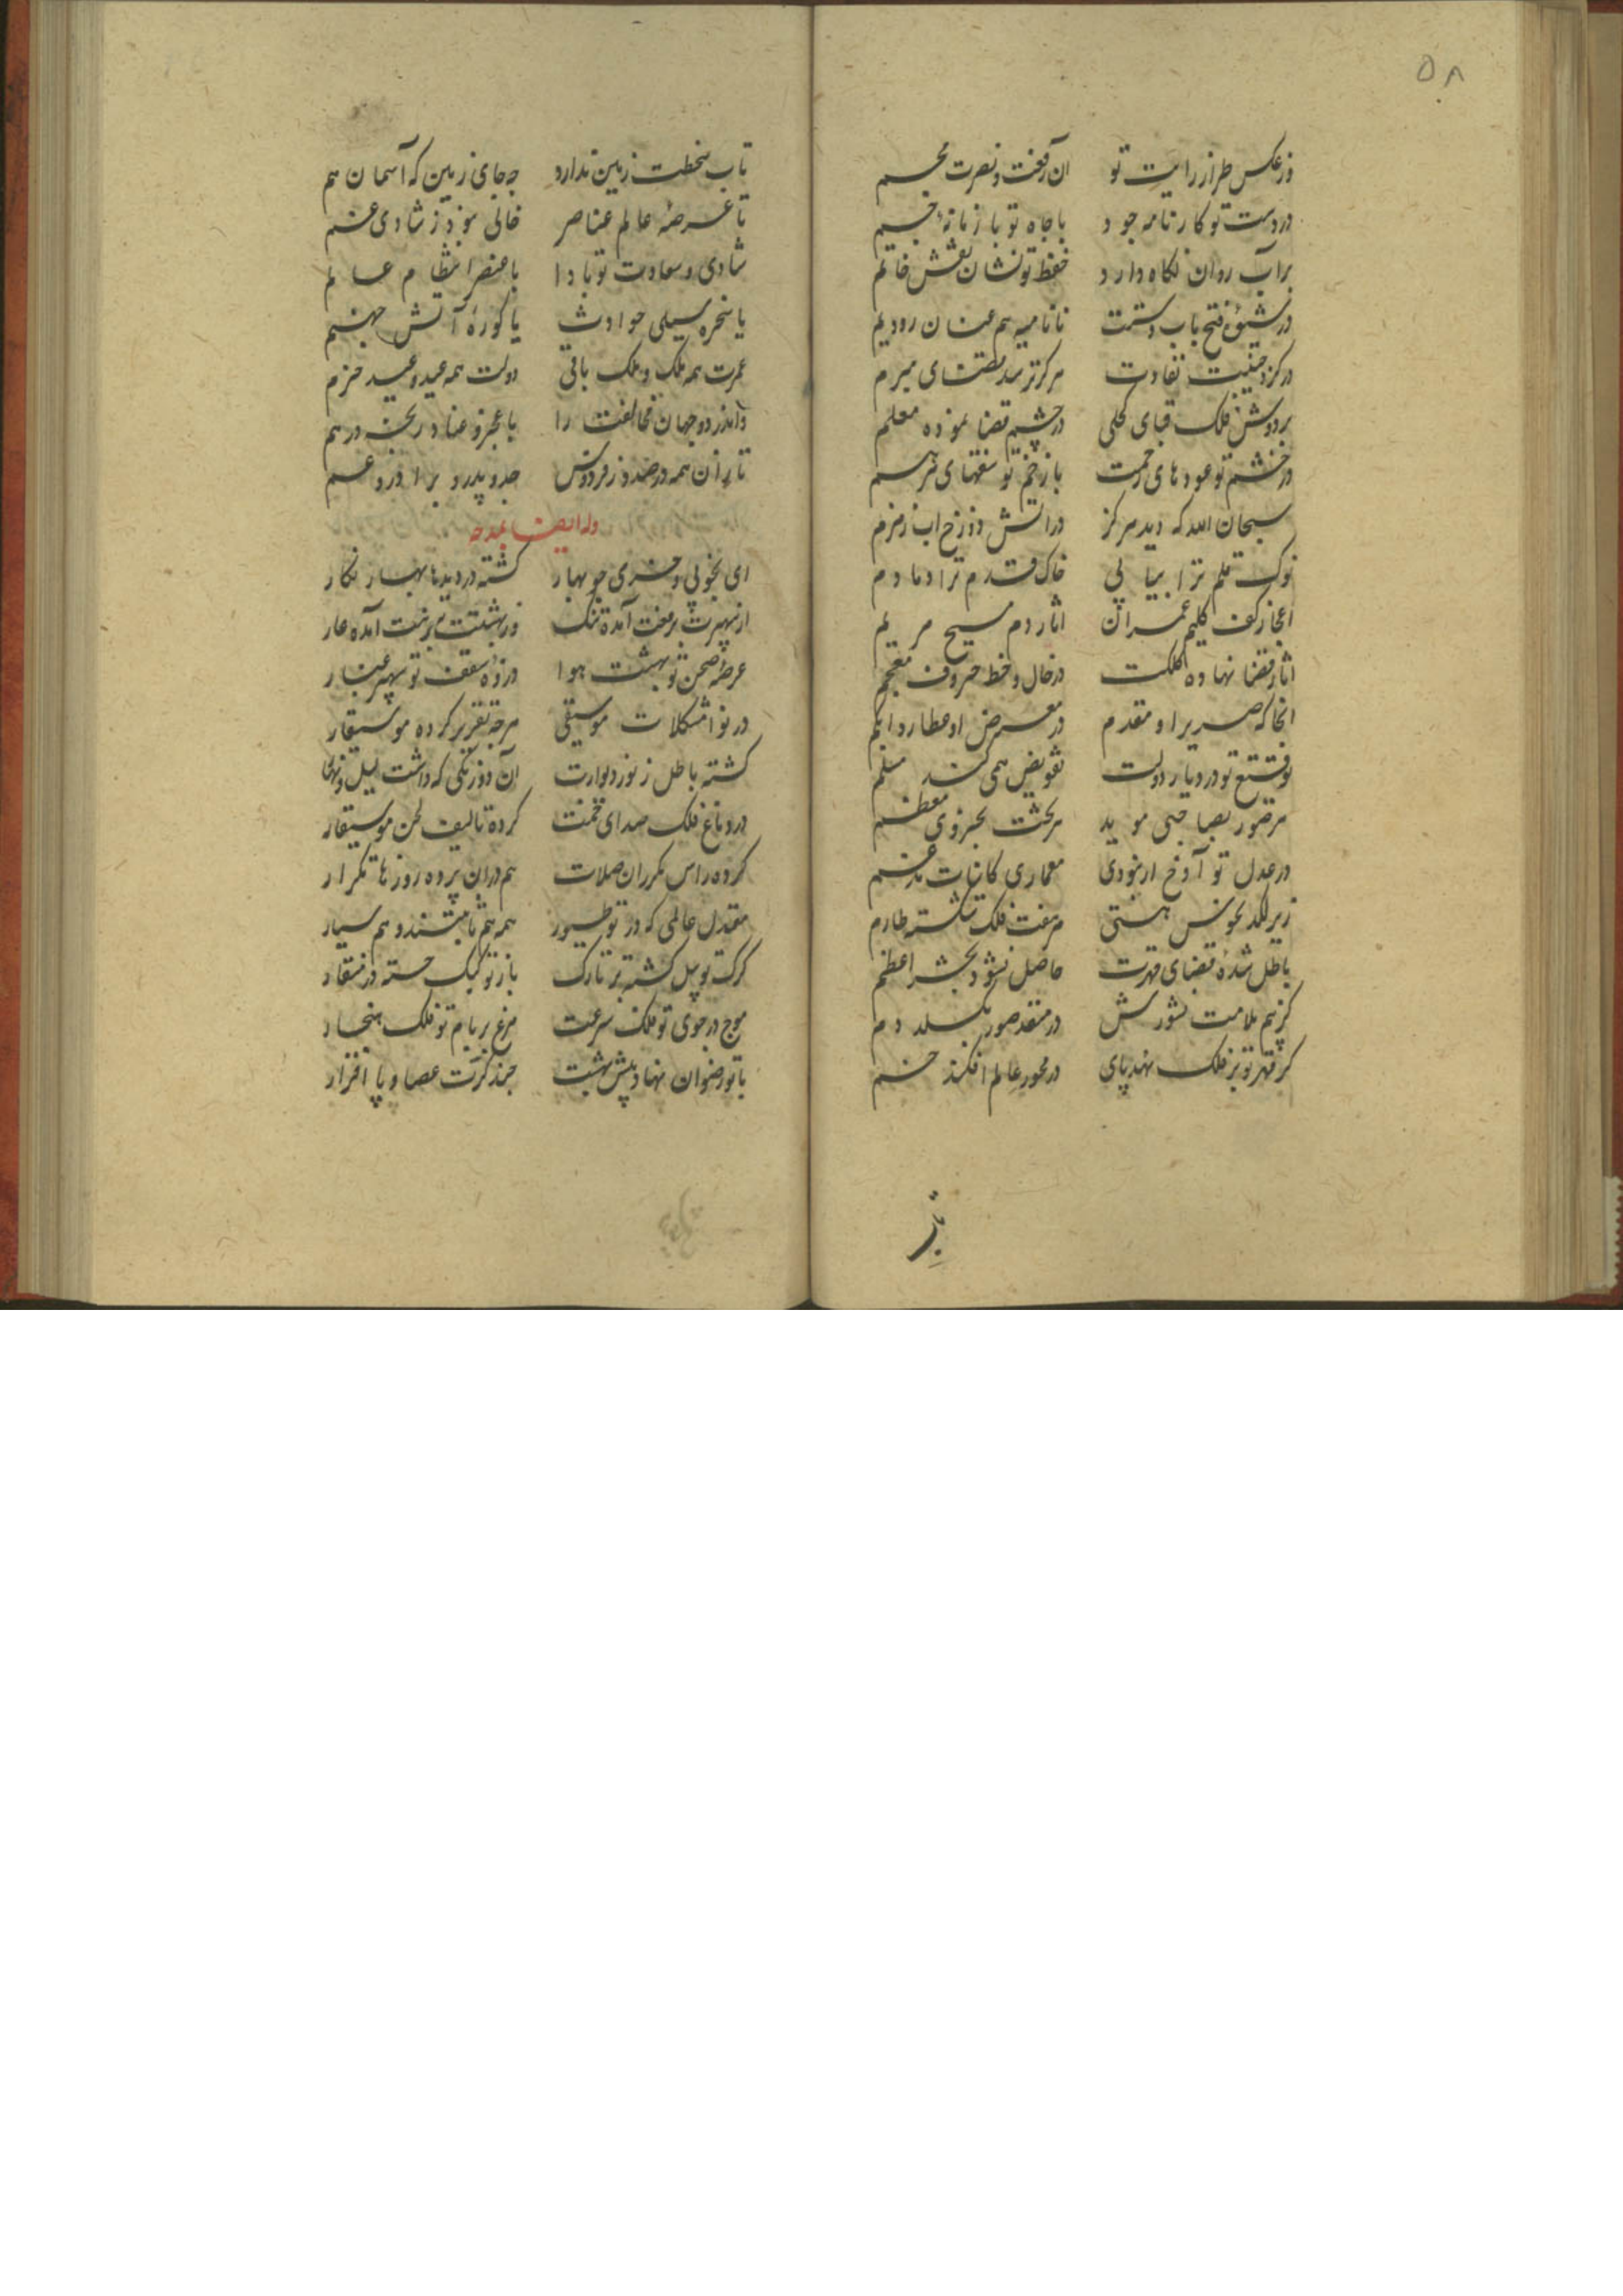 ۵۸
وز عکس طراز رایت تو آن رفعت و نصرت مجسم
در دست تو کارنامه جود با جاه تو بار نامه جم
بر آب روان نگاه دارد حفظ تو نشان نقش خاتم
در فتح باب دستت تا نامیه هم عنان رود یم
در کر تفاوت هرگز نرسد قضای مبرم
بر دوش فلک قبای کحلی در چشم قضا نموده معلم
در خشم تو عودهای رحمت با زخم تو مرهم
سبحان الله که دید هرگز در آتش دوزخ آب زمزم
نوک قلم ترا پیاپی خاک قدم ترا دمادم
اعجاز کف کلیم عمران آثار دم مسیح مریم
آثار قضا نهاده کلکت در خال و خط حروف معجم
آنجا که صریر او مقدم در معرض او عطارد ابکم
توقیع تو در دیار دولت تفویض همی کند مسلم
هر صور بصاحبی موید هر بخت بخسروی معظم
در عدل تو آوخ ار نبودی معماری کاینات مدغم
زیر لگد نحوس هستی هر هفت فلک شکسته طارم
باطل شده قضای قهرت حاصل نشود بحشر اعظم
کز بیم ملامت نشورش در منفذ صور بگسلد دم
گر قهر تو بر فلک نهد پای در محور عالم افکند خم
تاب
تاب سخطت زمین ندارد چه جای زمین که آسمان هم
تا عرصه عالم عناصر خالی نبود ز شادی و غم
شادی و سعادت تو بادا با عنصر انتظام عالم
یا سخره سیلی حوادث یا کوره آتش جهنم
عمرت همه ملک و ملک باقی دولت همه عید و عید خرم
و اندر دو جهان مخالفت را با عجز و عنا و رنج در هم
نازان همه در صدور فردوس جد و پدر و برادر و عم
وله ایضا یمدحه
ای بخوبی و خرمی چو بهار گشته در دیدها بهار نگار
از سپهرت برفعت آمده ننگ وز بهشتت بزینت آمده عار
عرصه صحن تو بهشت هوا ذروه سقف تو سپهر عیار
در نوا مشکلات موسیقی هرچه تقریر کرده موسیقار
گشته باطل ز نور دیوارت آن دو رنگی که داشت لیل و نهار
در دماغ فلک صدای خمت کرده تالیف لحن موسیقار
کرده راس مکرران صلات هم در آن پرده روزها تکرار
معتدل عالمی که در تو طیور همه هم ثابتند و هم سیار
کرگ تو پیل کشته بر تارک باز تو کبک خسته در منقار
موج در جوی تو فلک سرعت مرغ بر بام تو فلک هنجار
با تو رضوان نهاده پیش بهشت چند کرت عصا و پا افزار